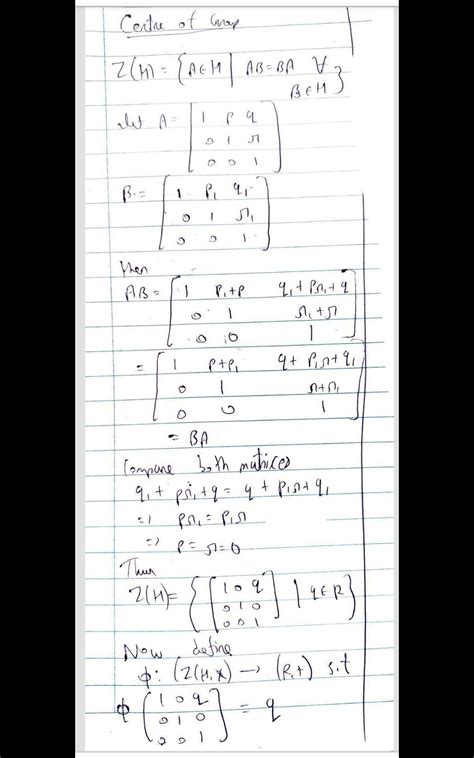 Centre of Group
Z(H) = { A∈H | AB=BA ∀
B∈H }
Let A = [ 1 p q
0 1 r
0 0 1 ]
B = [ 1 p₁ q₁
0 1 r₁
0 0 1 ]
then
AB = [ 1 p₁+p q₁+pr₁+q
0 1 r₁+r
0 0 1 ]
= [ 1 p+p₁ q+p₁r+q₁
0 1 r+r₁
0 0 1 ]
= BA
Compare both matrices
q₁+pr₁+q = q+p₁r+q₁
=) pr₁ = p₁r
=) p=r=0
Thus
Z(H) = { [ 1 0 q
0 1 0
0 0 1 ] | q∈R }
Now define
ϕ: (Z(H,x) → (R,+) s.t
ϕ ( 1 0 q
0 1 0
0 0 1 ) = q